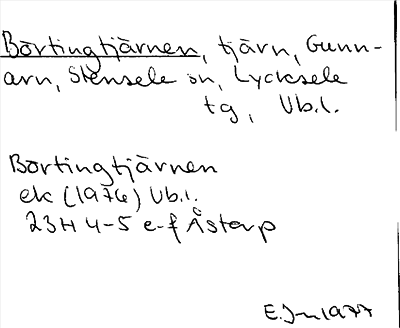 Börtingtjärnen, tjärn, Gunn-
arn, Stensele sn, Lycksele
tg, Vb.l.
Börtingtjärnen
ek (1976) Vb.l.
23H 4-5 e-f Åstorp
E.J-n 1977